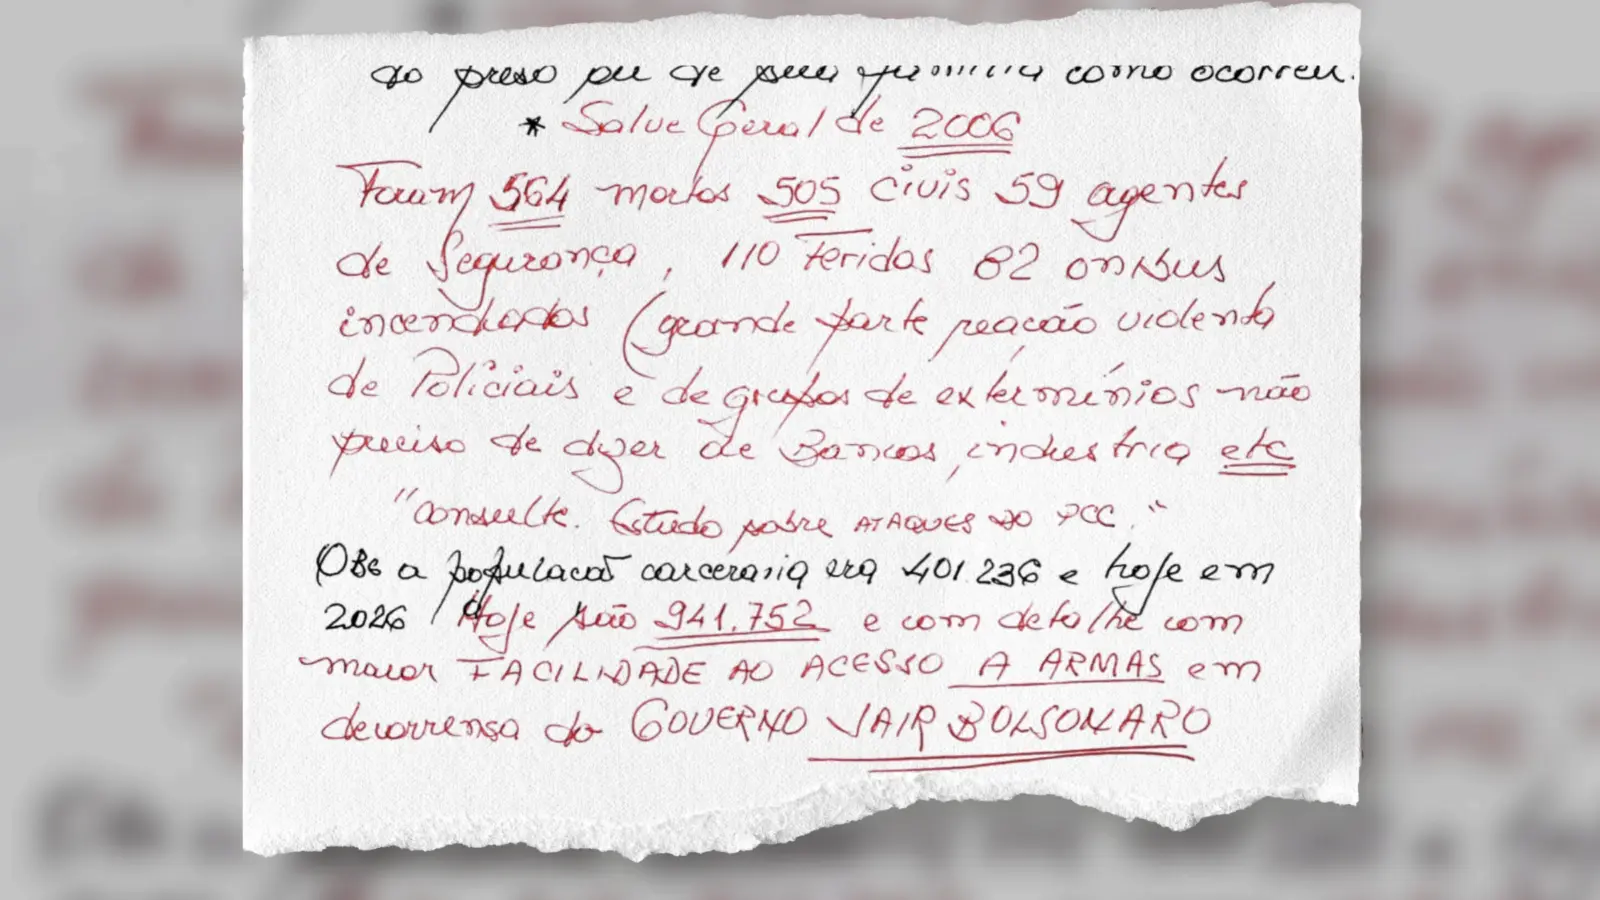 do preso ou de sua família como ocorreu.
* Salve Geral de 2006
Foram 564 mortos 505 civis 59 agentes
de Segurança, 110 feridos 82 onibus
incendiados (grande parte reacão violenta
de Policiais e de grupos de extermínios não
preciso de dizer de Bancos, industria etc
"consulte. Estudo sobre ATAQUES DO PCC."
Obs a população carceraria era 401.236 e hoje em
2026 Hoje são 941.752 e com detalhe com
maior FACILIDADE AO ACESSO A ARMAS em
decorrensa do GOVERNO JAIR BOLSONARO